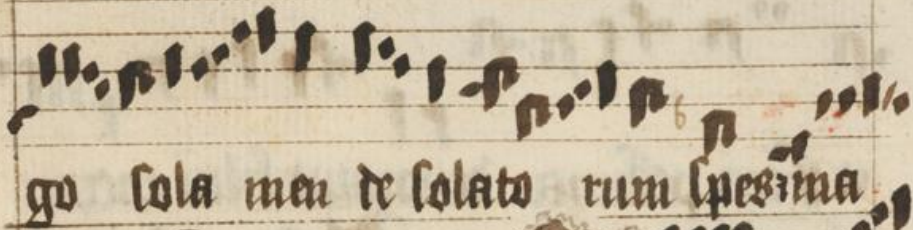 go sola men de solato rum spes ima